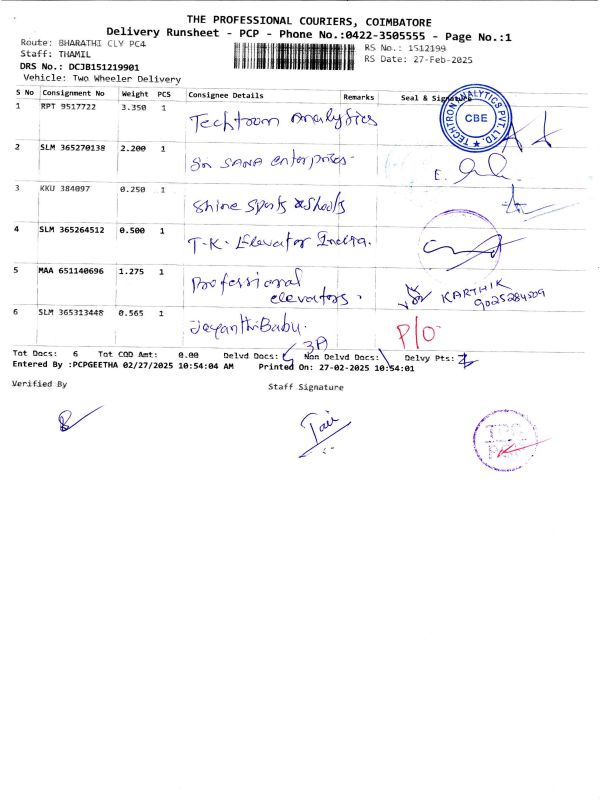 THE PROFESSIONAL COURIERS, COIMBATORE
Delivery Runsheet - PCP - Phone No.:0422-3505555 - Page No.:1
Route: BHARATHI CLY PC4 RS No.: 1512199
Staff: THAMIL RS Date: 27-Feb-2025
DRS No.: DCJB151219901
Vehicle: Two Wheeler Delivery
S No Consignment No Weight PCS Consignee Details Remarks Seal & Signature
1 RPT 9517722 3.350 1 Techtron Analytics
TECHTRON ANALYTICS PVT. LTD. ★ CBE
2 SLM 365270138 2.200 1 Sri SANA enterprises.
3 KKU 384097 0.250 1 Shine Sports &
4 SLM 365264512 0.500 1 T.K. Elevator India.
5 MAA 651140696 1.275 1 Professional
elevators. KARTHIK
9025284509
6 SLM 365313448 0.565 1 JayanthiBabu. P/O
3A
Tot Docs: 6 Tot COD Amt: 0.00 Delvd Docs: Non Delvd Docs: Delvy Pts:
Entered By :PCPGEETHA 02/27/2025 10:54:04 AM Printed On: 27-02-2025 10:54:01
Verified By Staff Signature